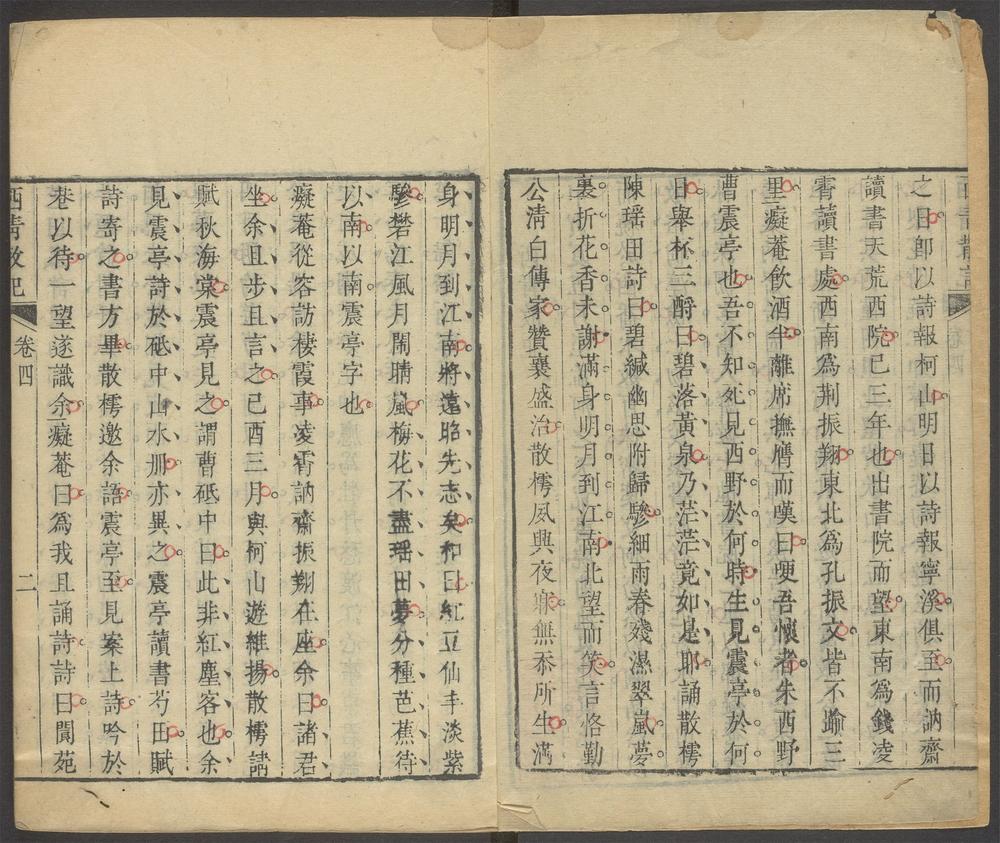 之日卽以詩報柯山明日以詩報寧溪俱至而訥齋
讀書天荒西院已三年也出書院而望東南爲錢凌
霄讀書處西南爲荆振翔東北爲孔振文皆不踰三
里癡菴飲酒半離席撫膺而嘆曰哽吾懷者朱西野
曹震亭也吾不知死見西野於何時生見震亭於何
日舉杯三酹曰碧落黃泉乃茫茫竟如是耶誦散樗
陳瑶田詩曰碧緘幽思附歸驂細雨春殘濕翠嵐夢
裏折花香未謝滿身明月到江南北望而笑言恪勤
公清白傳家贊襄盛治散樗夙興夜寐無忝所生滿
身明月到江南將遠昭先志矣和曰紅豆仙丰淡紫
驂礬江風月閙晴嵐梅花不盡瑶田夢分種芭蕉待
以南以南震亭字也
癡菴從容訪棲霞事凌霄訥齋振翔在座余曰諸君
坐余且步且言之己酉三月與柯山遊維揚散樗講
賦秋海棠震亭見之謂曹砥中曰此非紅塵客也余
見震亭詩於砥中山水册亦異之震亭讀書芍田賦
詩寄之書方畢散樗邀余語震亭至見案上詩吟於
巷以待一望遂識余癡菴曰爲我且誦詩詩曰閬苑
西青散記
卷四
二